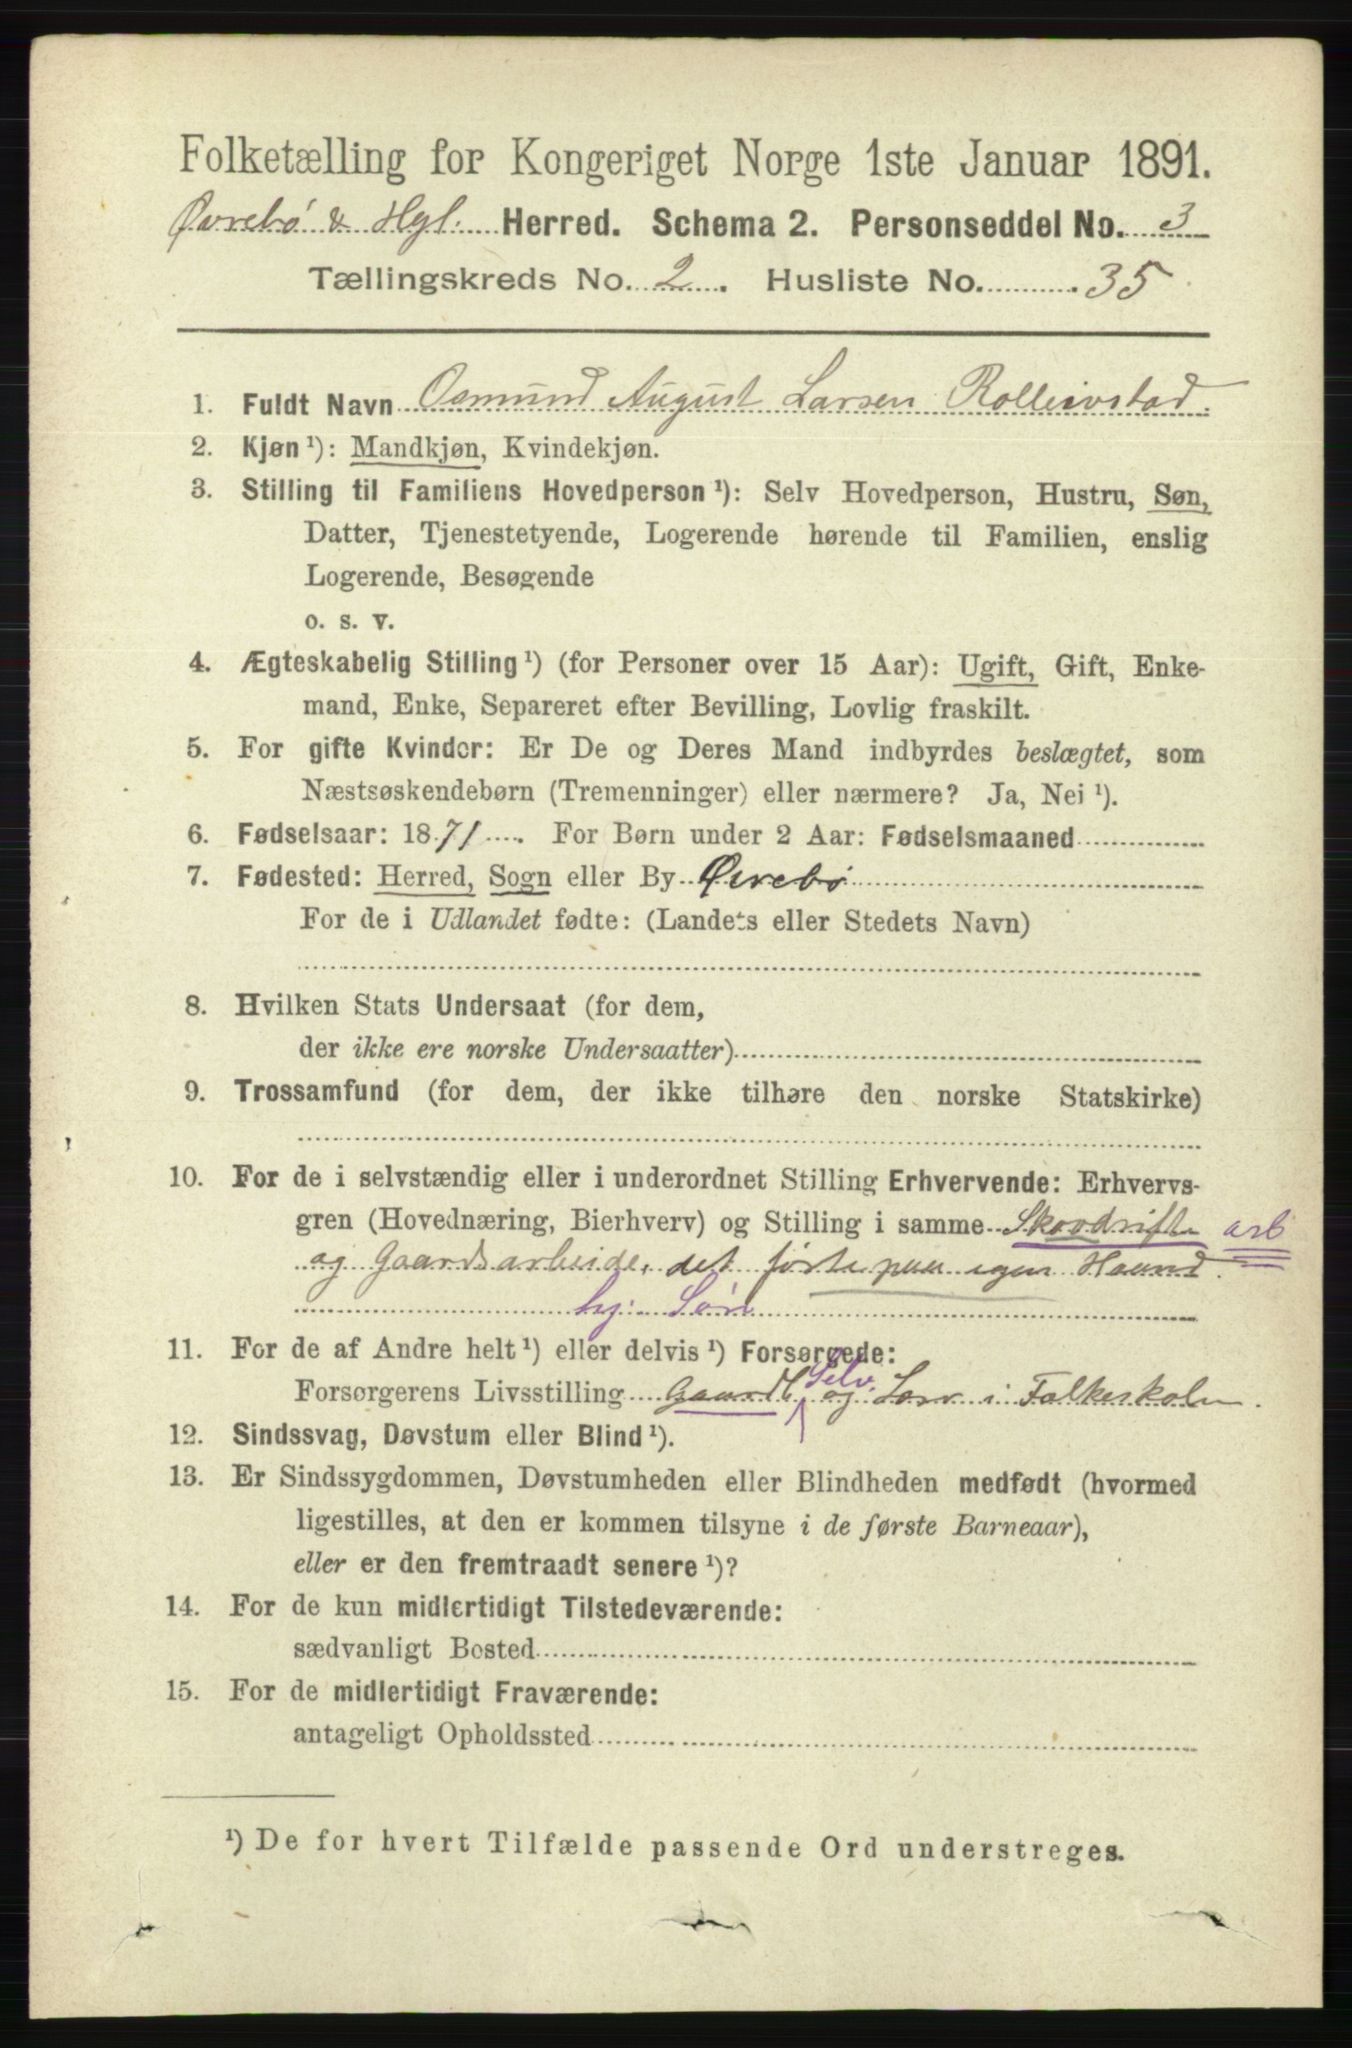 Folketælling for Kongeriget Norge 1ste Januar 1891.
Øvrebø & Hgl. Herred. Schema 2. Personseddel No. 3
Tællingskreds No. 2. Husliste No. 35
1. Fuldt Navn Osmund August Larsen Rolleivstad.
2. Kjøn ¹): Mandkjøn, Kvindekjøn.
3. Stilling til Familiens Hovedperson ¹): Selv Hovedperson, Hustru, Søn,
Datter, Tjenestetyende, Logerende hørende til Familien, enslig
Logerende, Besøgende
o. s. v.
4. Ægteskabelig Stilling ¹) (for Personer over 15 Aar): Ugift, Gift, Enke-
mand, Enke, Separeret efter Bevilling, Lovlig fraskilt.
5. For gifte Kvinder: Er De og Deres Mand indbyrdes beslægtet, som
Næstsøskendebørn (Tremenninger) eller nærmere? Ja, Nei ¹).
6. Fødselsaar: 1871. For Børn under 2 Aar: Fødselsmaaned
7. Fødested: Herred, Sogn eller By Øvrebø
For de i Udlandet fødte: (Landets eller Stedets Navn)
8. Hvilken Stats Undersaat (for dem,
der ikke ere norske Undersaatter)
9. Trossamfund (for dem, der ikke tilhøre den norske Statskirke)
10. For de i selvstændig eller i underordnet Stilling Erhvervende: Erhvervs-
gren (Hovednæring, Bierhverv) og Stilling i samme Skovdrifts arb
og Gaardsarbeide, det første paa egen Haand.
hj. Søn
11. For de af Andre helt ¹) eller delvis ¹) Forsørgede:
Forsørgerens Livsstilling Gaardb. Selv. og Lærer i Folkeskolen.
12. Sindssvag, Døvstum eller Blind ¹).
13. Er Sindssygdommen, Døvstumheden eller Blindheden medfødt (hvormed
ligestilles, at den er kommen tilsyne i de første Barneaar),
eller er den fremtraadt senere ¹)?
14. For de kun midlertidigt Tilstedeværende:
sædvanligt Bosted
15. For de midlertidigt Fraværende:
antageligt Opholdssted
¹) De for hvert Tilfælde passende Ord understreges.